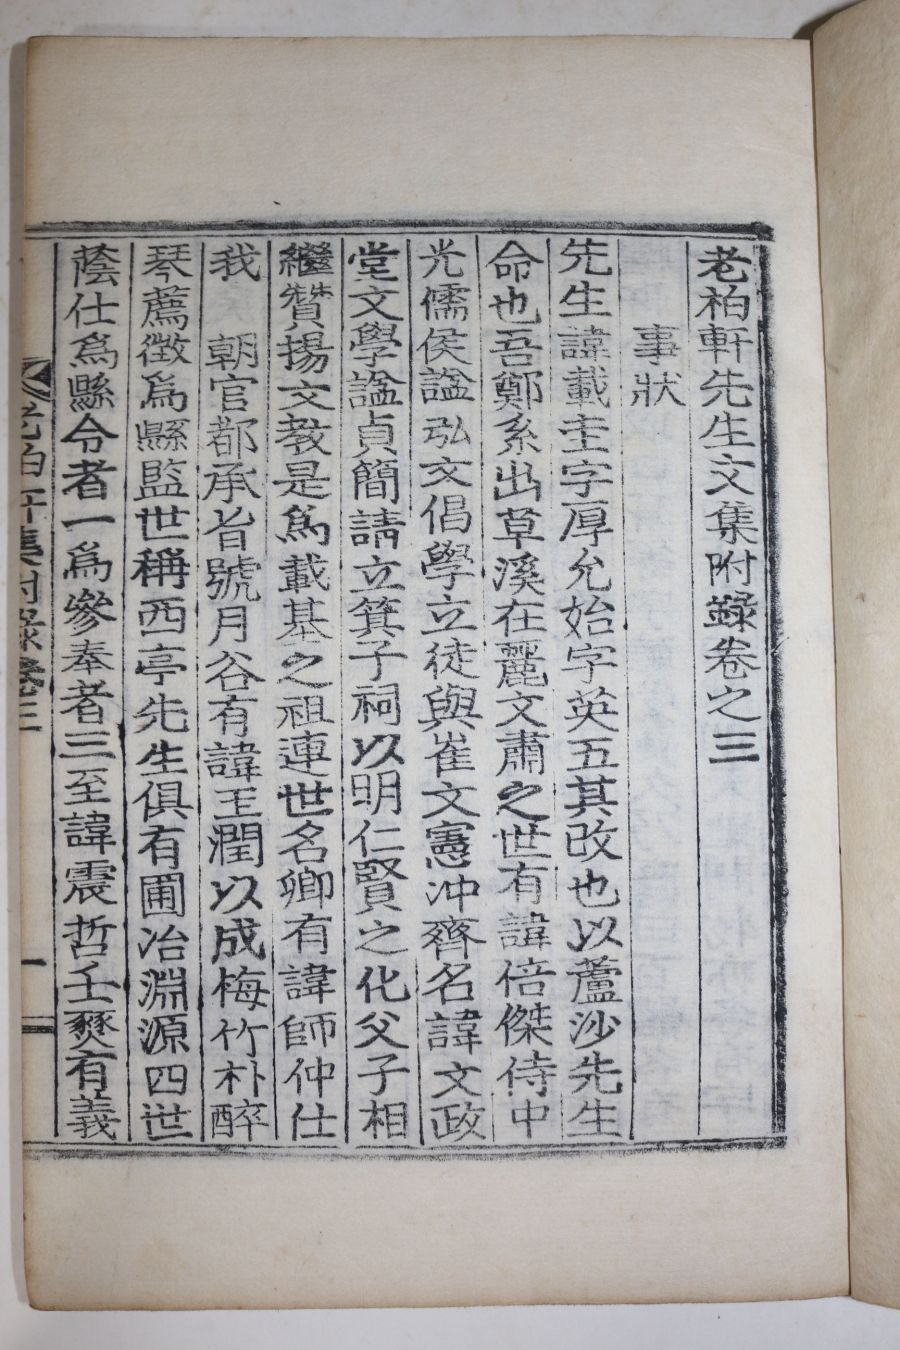 老柏軒先生文集附錄卷之三
事狀
先生諱載圭字厚允始字英五其改也以蘆沙先生
命也吾鄭系出草溪在麗文肅之世有諱倍傑侍中
光儒侯諡弘文倡學立徒與崔文憲冲齊名諱文政
堂文學諡貞簡請立箕子祠以明仁賢之化父子相
繼贊揚文教是爲載基之祖連世名卿有諱師仲仕
我 朝官都承旨號月谷有諱玉潤以成梅竹朴醉
琴薦徵爲縣監世稱西亭先生俱有圃冶淵源四世
蔭仕爲縣令者一爲參奉者三至諱震哲壬燹有義
老柏軒集附錄卷三
一